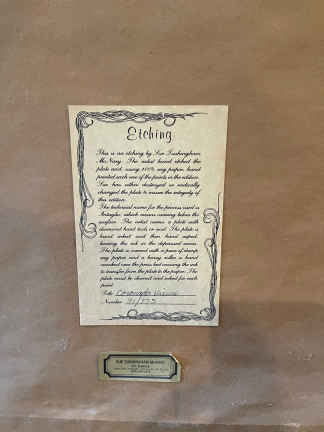 Etching
This is an etching by Sue Tushingham
McNary. The artist hand etched the
plate and, using 100% rag paper, hand
printed each one of the prints in the edition.
Sue has either destroyed or radically
changed the plate to ensure the integrity of
this edition.
The technical name for the process used is
Intaglio, which means carving below the
surface. The artist carves a plate with
diamond hand tools or acid. The plate is
hand inked and then hand wiped,
leaving the ink in the depressed areas.
The plate is covered with a piece of damp
rag paper and a heavy roller is hand
cranked over the press bed causing the ink
to transfer from the plate to the paper. The
plate must be cleaned and inked for each
print.
Title Coronado
Number /
SUE TUSHINGHAM McNARY